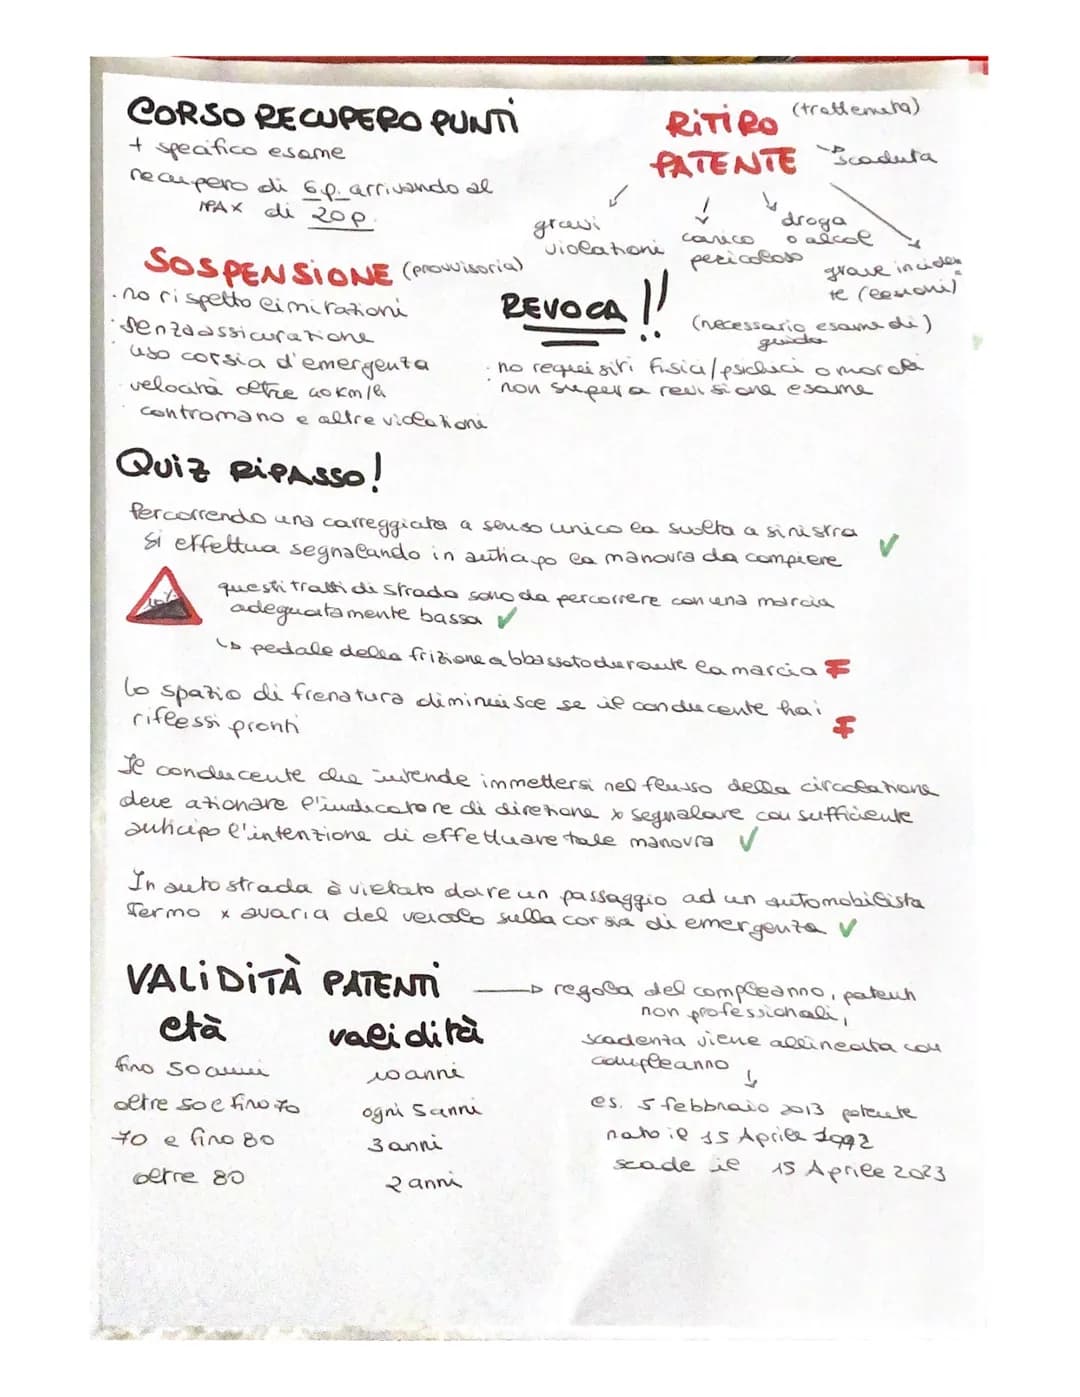 CORSO RECUPERO PUNTI
+ specifico esame
recupero di 6p. arrivando al
MAX di 20p.
RITIRO (trattenuta)
PATENTE
scaduta
gravi
violazioni
carico
pericoloso
droga
o alcol
grave inciden
te (lesioni)
SOSPENSIONE (provvisoria)
· no rispetto limitazioni
· senza assicurazione
uso corsia d'emergenza
· velocità oltre 40 km/h
· contromano e altre violazioni
REVOCA !!
(necessario esame di)
guida
· no requisiti fisici/psichici o morali
· non supera revisione esame
QUIZ RIPASSO!
Percorrendo una carreggiata a senso unico la svolta a sinistra
si effettua segnalando in anticipo la manovra da compiere ✓
10%
questi tratti di strada sono da percorrere con una marcia
adeguatamente bassa ✓
↳ pedale della frizione abbassato durante la marcia F
lo spazio di frenatura diminuisce se il conducente hai
riflessi pronti F
Il conducente che intende immettersi nel flusso della circolazione
deve azionare l'indicatore di direzione x segnalare con sufficiente
anticipo l'intenzione di effettuare tale manovra ✓
In autostrada è vietato dare un passaggio ad un automobilista
fermo x avaria del veicolo sulla corsia di emergenza ✓
VALIDITÀ PATENTI → regola del compleanno, patenti
non professionali,
scadenza viene allineata con
compleanno
↓
es. 5 febbraio 2013 patente
nato il 15 Aprile 1992
scade il 15 Aprile 2023
età validità
fino 50 anni 10 anni
oltre 50 e fino 70 ogni 5 anni
70 e fino 80 3 anni
oltre 80 2 anni